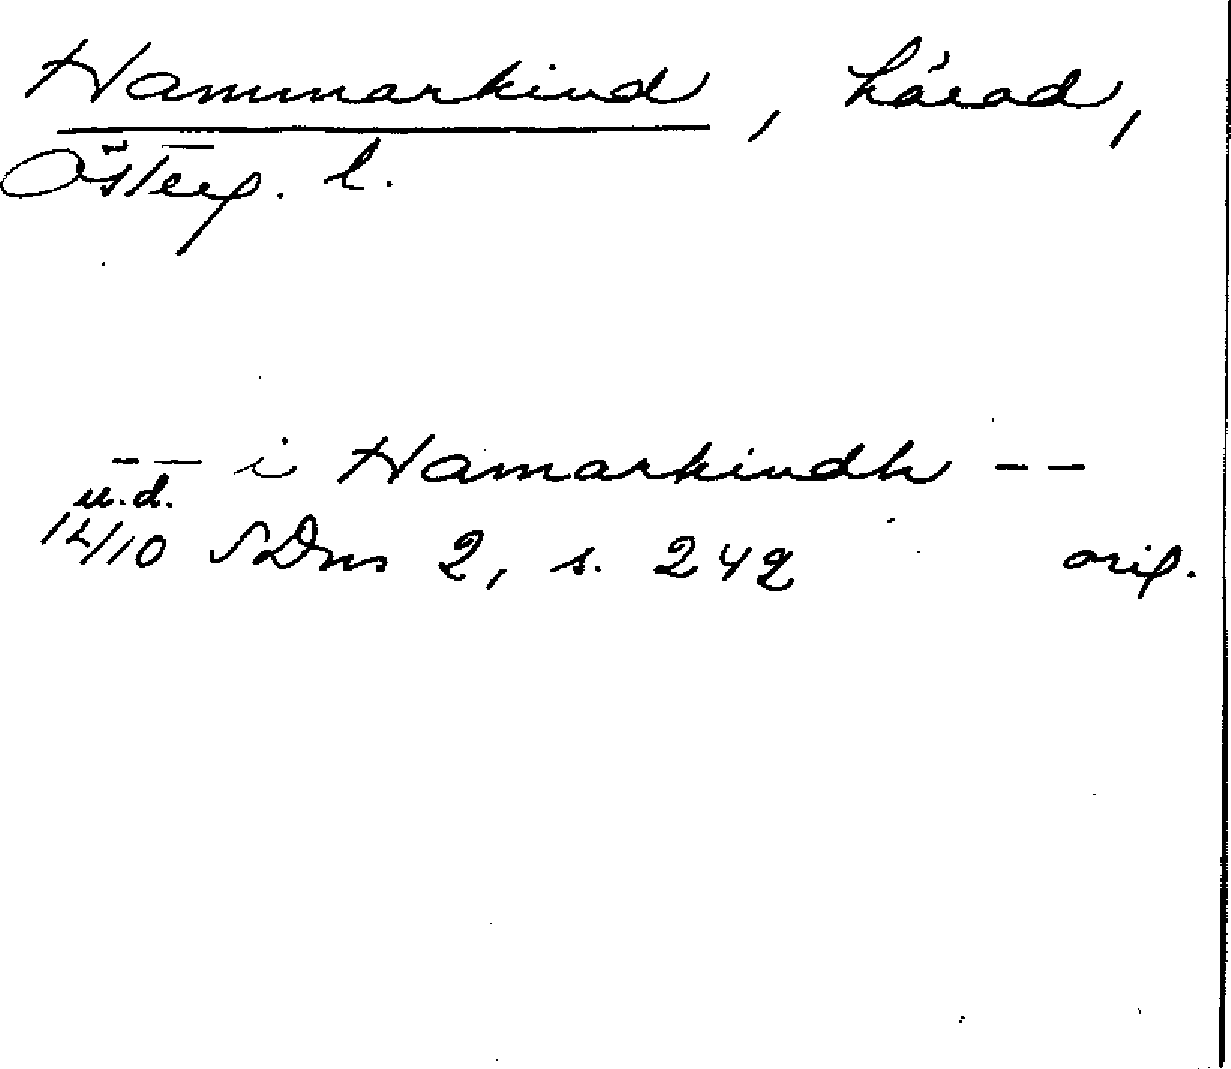 Hammarkind, härad,
Österg. l.
-- i Hamarkindh --
u.d.
12/10 SDns 2, s. 242 orig.